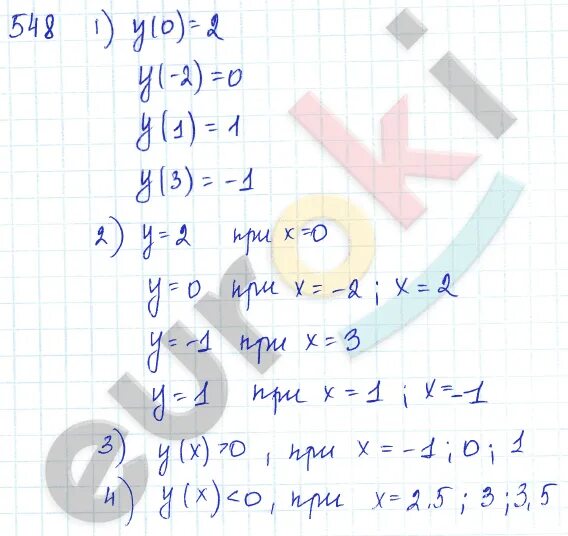 548 1) y(0)=2
y(-2)=0
y(1)=1
y(3)=-1
2) y=2 при x=0
y=0 при x=-2; x=2
y=-1 при x=3
y=1 при x=1; x=-1
3) y(x)>0, при x=-1; 0; 1
4) y(x)<0, при x=2.5; 3; 3,5
euroki